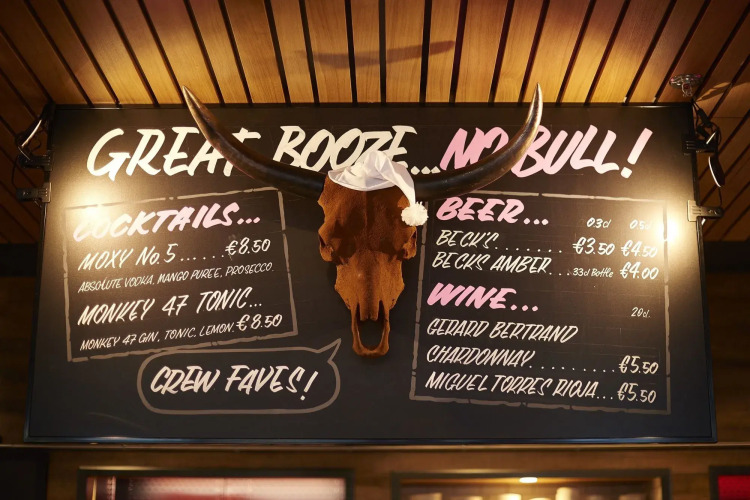 GREAT BOOZE...NO BULL!
COCKTAILS...
MOXY No.5......€8.50
ABSOLUTE VODKA, MANGO PUREE, PROSECCO.
MONKEY 47 TONIC...
MONKEY 47 GIN, TONIC, LEMON. €8.50
CREW FAVES!
BEER... 03cl 05cl
BECK'S.......... €3.50 €4.50
BECKS AMBER... 33cl Bottle €4.00
WINE... 20cl.
GERARD BERTRAND
CHARDONNAY.......... €5.50
MIGUEL TORRES RIOJA... €5.50